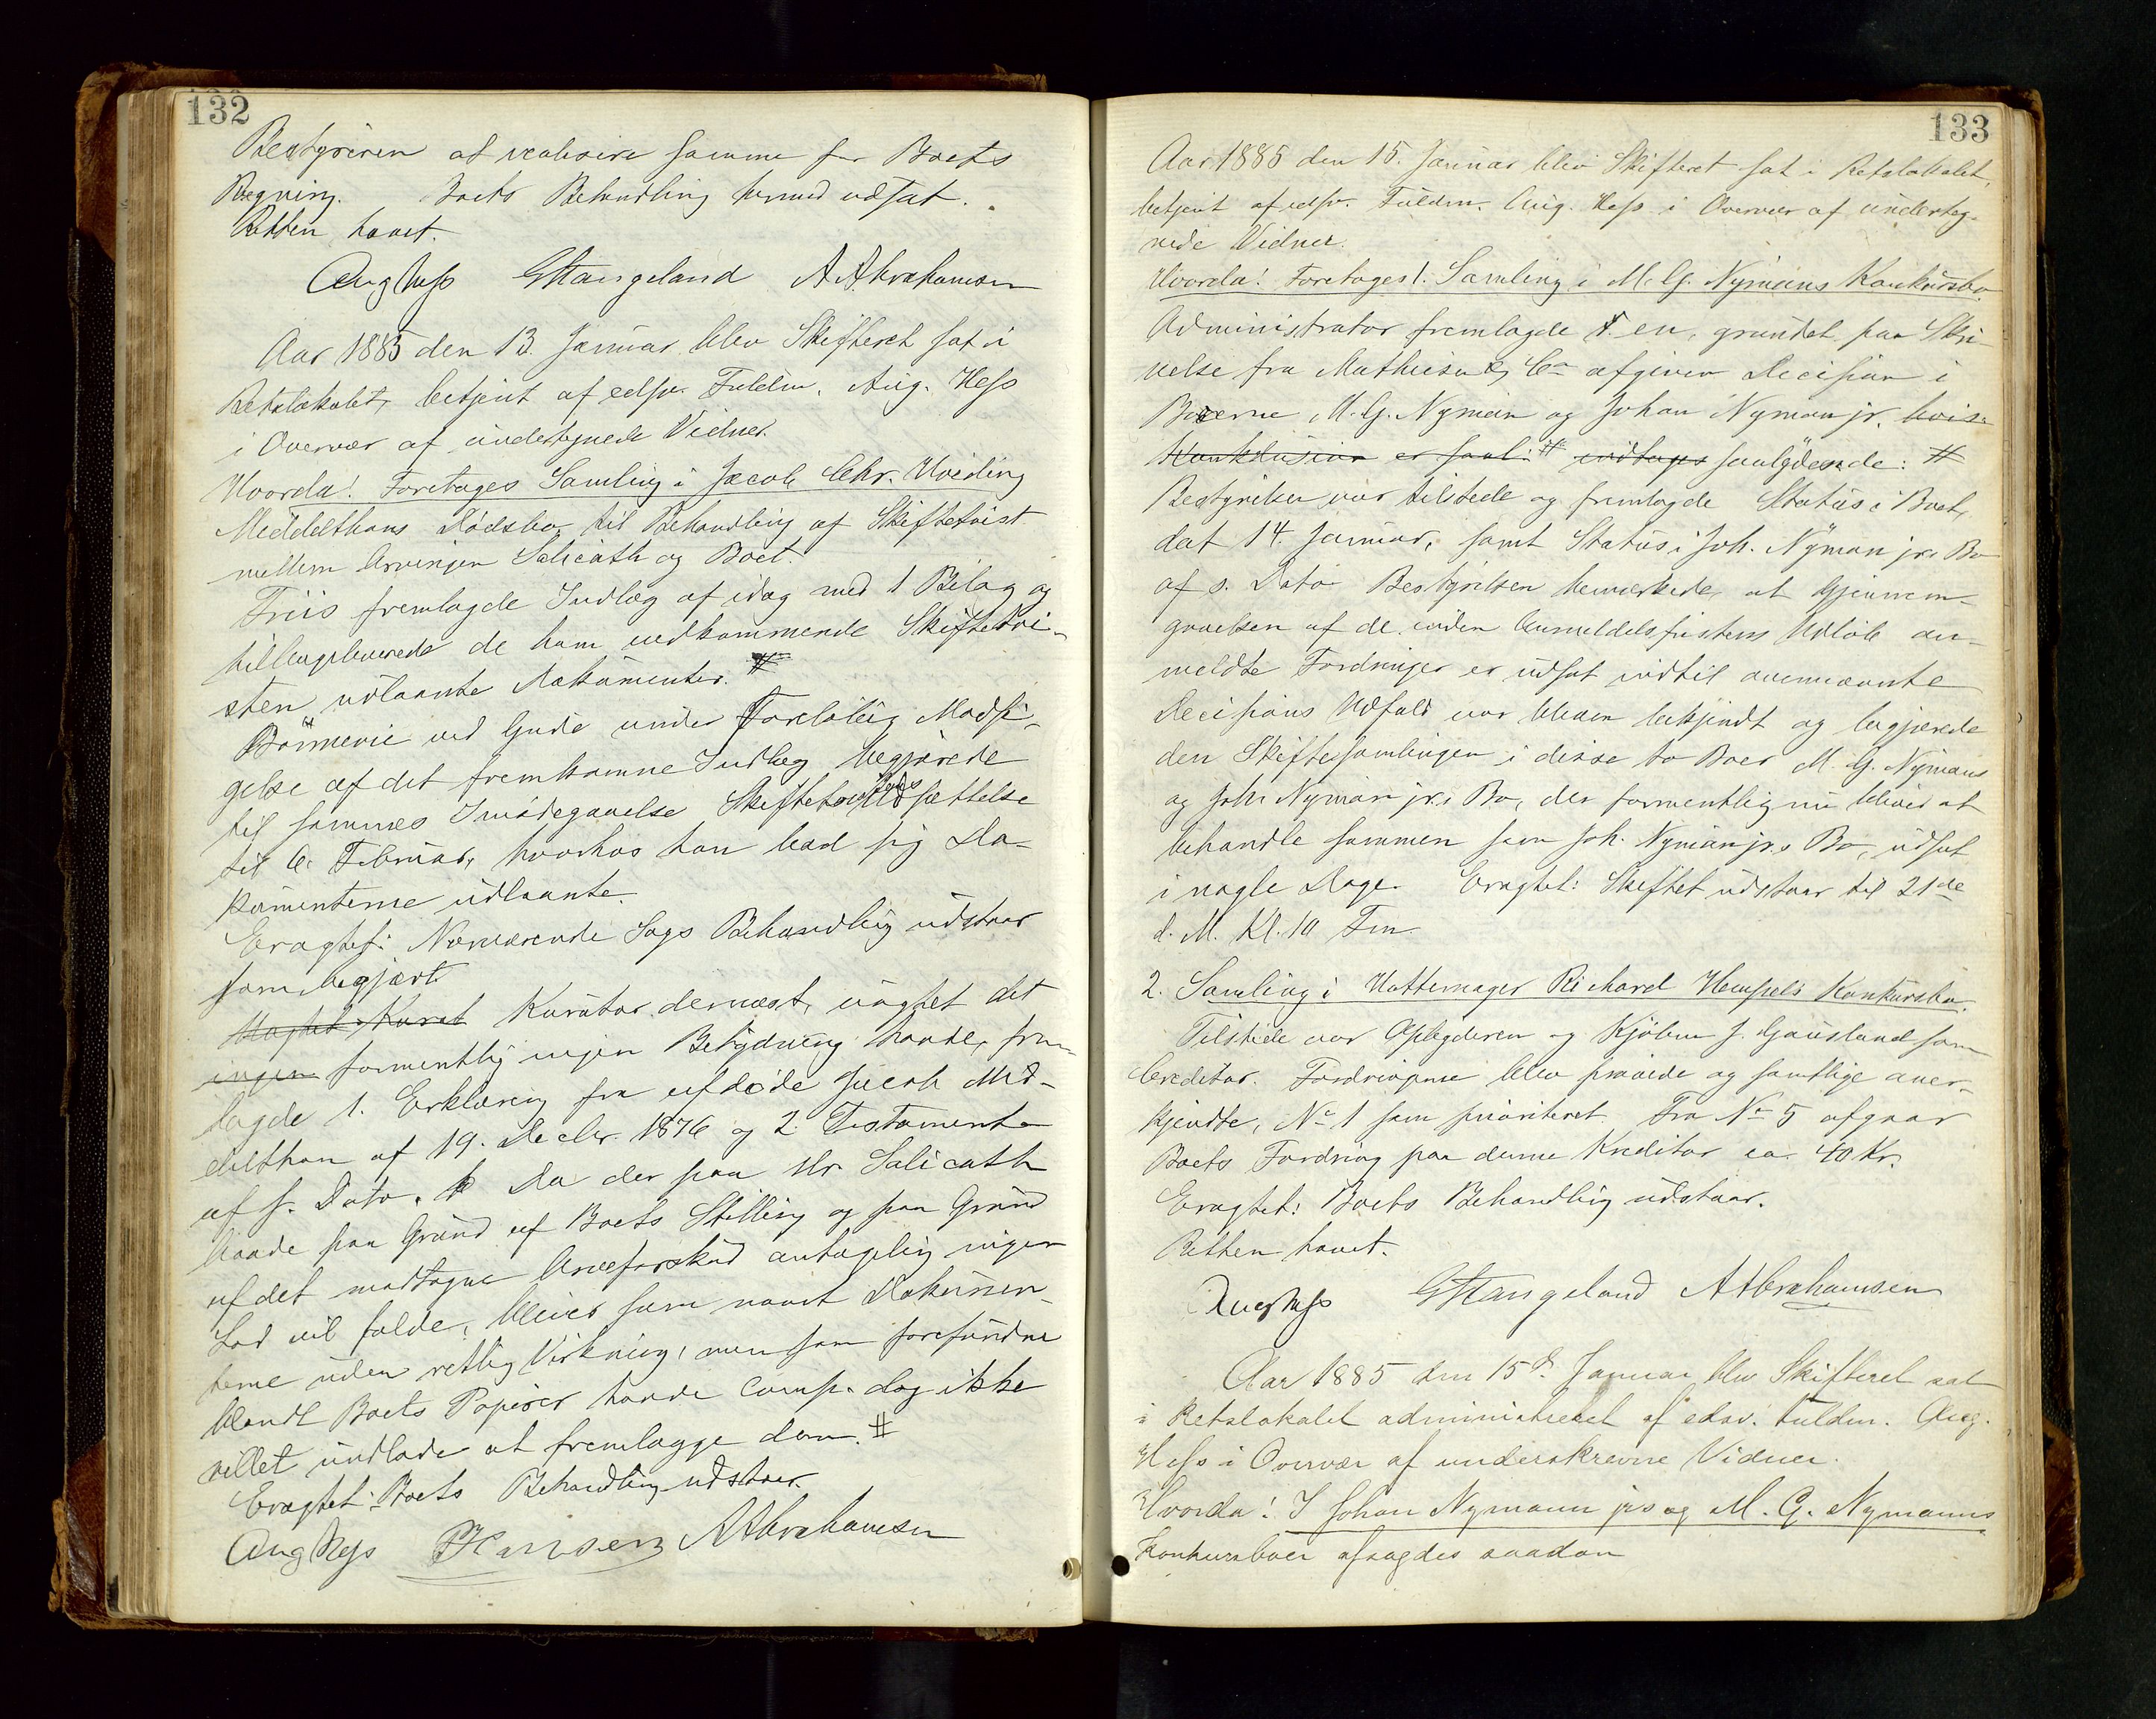 132
Bestyreren at realisere samme for Boets
Regning. Boets Behandling hermed udsat.
Retten hævet.
Aug Hess GStangeland AAbrahamsen
Aar 1885 den 13. Januar blev Skifteret sat i
Retslokalet, betjent af edsv. Fuldm. Aug. Hess
i Overvær af undertegnede Vidner.
Hvorda! Foretages Samling i Jacob Chr. Hvisling
Middelthons Dødsbo, til Behandling af Skiftetvist
mellem Arvingen Salicath og Boet.
Friis fremlagde Indlæg af idag med 1 Bilag og
tilbageleverede de ham vedkommende Skiftetvi-
sten udlaante Dokumenter. #
ved Gude under Foreløbig Modsi-
gelse af det fremkomne Indlæg begjærede
til sammes Imødegaaelse Skiftetvistens Udsættelse
til 6. Februar, hvorhos han bad sig Do-
kumenterne udlaante.
Eragtet: Nærværende Sags Behandling udstaar
som begjært.
Kurator dernæst, uagtet det
ingen formentlig ingen Betydning havde, frem-
lagde 1. Erklæring fra afdøde Jacob Mid-
delthon af 19. Decbr. 1876 og 2. Testament
af s. Dato. Da der paa Hr Salicath
baade paa Grund af Boets Stilling og paa Grund
af det modtagne Arveforskud antagelig ingen
Lod vil falde, bliver som nævnt Dokumen-
terne uden retlig Virkning, men som forefundne
blandt Boets Papirer havde Comp. dog ikke
villet undlade at fremlægge dem. #
Eragtet: Boets Behandling udstaar.
Aug Hess Hansen AAbrahamsen
133
Aar 1885 den 15. Januar blev Skifteret sat i Retslokalet,
betjent af edsv. Fuldm. Aug. Hess i Overvær af underteg-
nede Vidner.
Hvorda! Foretages 1. Samling i M. G. Nymans Konkursbo.
Administrator fremlagde en, grundet paa Skri-
velse fra Mathiesen & Co afgiven Decision i
Boerne M. G. Nyman og Johan Nyman jr. hvis
Konklusion er saal: # indtages saalydende: #
Bestyrelsen var tilstede og fremlagde Status i Boet,
dat 14. Januar, samt Status i Joh. Nyman jr.s Bo
af s. Dato. Bestyrelsen bemærkede, at Gjennem-
gaaelsen af de inden Anmeldelsfristens Udløb an-
meldte Fordringer er udsat indtil ovennævnte
Decisions Udfald var bleven bekjendt og begjærede
den Skiftesamlingen i disse to Boer M. G. Nymans
og Joh. Nyman jr.s Bo, der formentlig nu bliver at
behandle sammen som Joh. Nyman jr.s Bo, udsat
i nogle Dage. Eragtet: Skiftet udstaar til 21de
d. M. Kl. 10 Fm.
2. Samling i Hattemager Richard Hempels Konkursbo.
Tilstede var Opbyderen og Kjøbm J. Gausland som
Creditor. Fordringerne blev prøvede og samtlige aner-
kjendte, No 1 som prioriteret. Fra No 5 afgaar
Boets Fordring paa denne Kreditor ca. 40 Kr.
Eragtet: Boets Behandling udstaar.
Retten hævet.
Aug Hess GStangeland AAbrahamsen
Aar 1885 den 15d. Januar blev Skifteret sat
i Retslokalet administreret af edsv. Fuldm. Aug.
Hess i Overvær af underskrevne Vidner.
Hvorda! I Johan Nymann jrs og M. G. Nymanns
Konkursboer afsagdes saadan